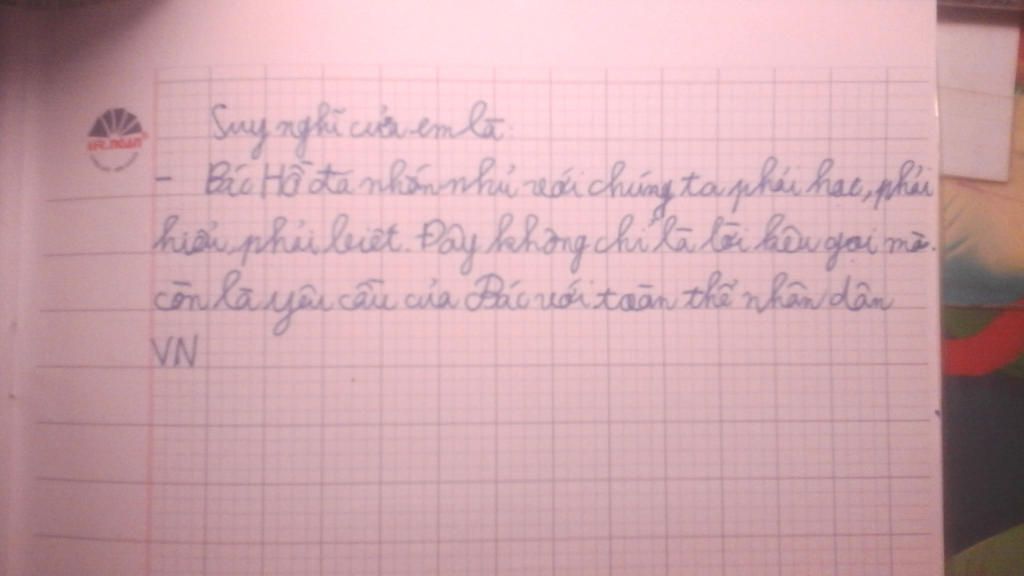 Suy nghĩ của em là:
- Bác Hồ đã nhắn nhủ với chúng ta phải học, phải
hiểu, phải biết. Đây không chỉ là lời kêu gọi mà
còn là yêu cầu của Bác với toàn thể nhân dân
VN